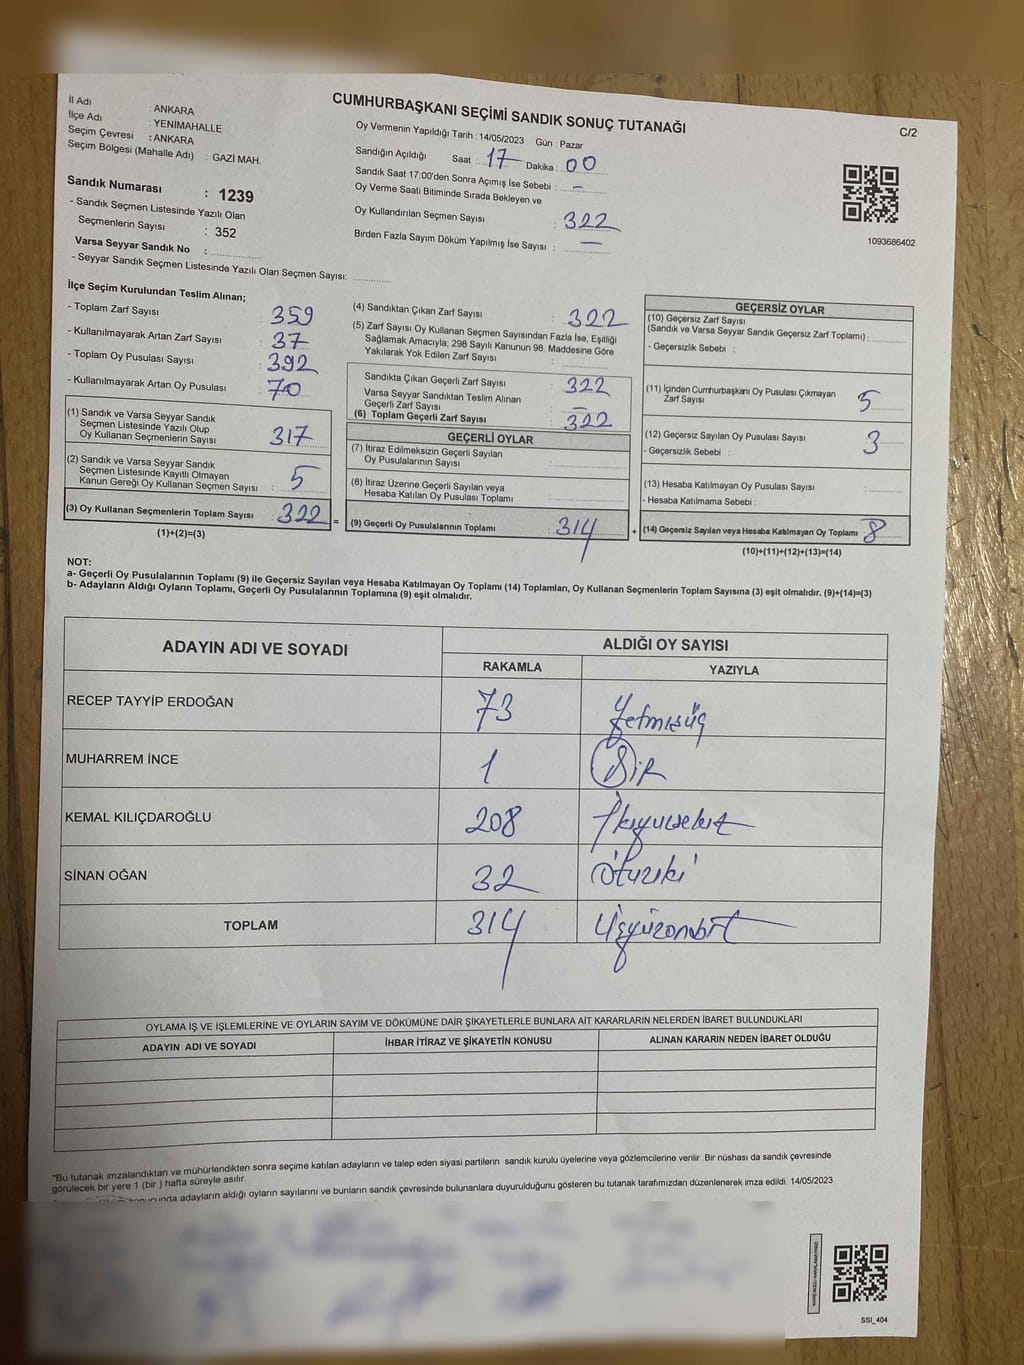 CUMHURBAŞKANI SEÇİMİ SANDIK SONUÇ TUTANAĞI
C/2
İl Adı : ANKARA
İlçe Adı : YENİMAHALLE
Seçim Çevresi : ANKARA
Seçim Bölgesi (Mahalle Adı) : GAZİ MAH.
Sandık Numarası : 1239
- Sandık Seçmen Listesinde Yazılı Olan
Seçmenlerin Sayısı : 352
Varsa Seyyar Sandık No :
- Seyyar Sandık Seçmen Listesinde Yazılı Olan Seçmen Sayısı:
Oy Vermenin Yapıldığı Tarih : 14/05/2023 Gün : Pazar
Sandığın Açıldığı Saat : 17 Dakika : 00
Sandık Saat 17:00'den Sonra Açımış İse Sebebi : -
Oy Verme Saati Bitiminde Sırada Bekleyen ve
Oy Kullandırılan Seçmen Sayısı : 322
Birden Fazla Sayım Döküm Yapılmış İse Sayısı : -
1093686402
İlçe Seçim Kurulundan Teslim Alınan;
- Toplam Zarf Sayısı : 359
- Kullanılmayarak Artan Zarf Sayısı : 37
- Toplam Oy Pusulası Sayısı : 392
- Kullanılmayarak Artan Oy Pusulası : 70
(1) Sandık ve Varsa Seyyar Sandık
Seçmen Listesinde Yazılı Olup
Oy Kullanan Seçmenlerin Sayısı : 317
(2) Sandık ve Varsa Seyyar Sandık
Seçmen Listesinde Kayıtlı Olmayan
Kanun Gereği Oy Kullanan Seçmen Sayısı : 5
(3) Oy Kullanan Seçmenlerin Toplam Sayısı : 322 =
(1)+(2)=(3)
(4) Sandıktan Çıkan Zarf Sayısı : 322
(5) Zarf Sayısı Oy Kullanan Seçmen Sayısından Fazla İse, Eşitliği
Sağlamak Amacıyla; 298 Sayılı Kanunun 98. Maddesine Göre
Yakılarak Yok Edilen Zarf Sayısı :
Sandıkta Çıkan Geçerli Zarf Sayısı : 322
Varsa Seyyar Sandıktan Teslim Alınan
Geçerli Zarf Sayısı : -
(6) Toplam Geçerli Zarf Sayısı : 322
GEÇERLİ OYLAR
(7) İtiraz Edilmeksizin Geçerli Sayılan
Oy Pusulalarının Sayısı :
(8) İtiraz Üzerine Geçerli Sayılan veya
Hesaba Katılan Oy Pusulası Toplamı :
(9) Geçerli Oy Pusulalarının Toplamı : 314 +
GEÇERSİZ OYLAR
(10) Geçersiz Zarf Sayısı
(Sandık ve Varsa Seyyar Sandık Geçersiz Zarf Toplamı) :
- Geçersizlik Sebebi :
(11) İçinden Cumhurbaşkanı Oy Pusulası Çıkmayan
Zarf Sayısı : 5
(12) Geçersiz Sayılan Oy Pusulası Sayısı : 3
- Geçersizlik Sebebi :
(13) Hesaba Katılmayan Oy Pusulası Sayısı :
- Hesaba Katılmama Sebebi :
(14) Geçersiz Sayılan veya Hesaba Katılmayan Oy Toplamı : 8
(10)+(11)+(12)+(13)=(14)
NOT:
a- Geçerli Oy Pusulalarının Toplamı (9) ile Geçersiz Sayılan veya Hesaba Katılmayan Oy Toplamı (14) Toplamları, Oy Kullanan Seçmenlerin Toplam Sayısına (3) eşit olmalıdır. (9)+(14)=(3)
b- Adayların Aldığı Oyların Toplamı, Geçerli Oy Pusulalarının Toplamına (9) eşit olmalıdır.
ADAYIN ADI VE SOYADI ALDIĞI OY SAYISI
RAKAMLA YAZIYLA
RECEP TAYYİP ERDOĞAN 73 Yetmişüç
MUHARREM İNCE 1 Bir
KEMAL KILIÇDAROĞLU 208 İkiyüzsekiz
SİNAN OĞAN 32 Otuziki
TOPLAM 314 Üçyüzondört
OYLAMA İŞ VE İŞLEMLERİNE VE OYLARIN SAYIM VE DÖKÜMÜNE DAİR ŞİKAYETLERLE BUNLARA AİT KARARLARIN NELERDEN İBARET BULUNDUKLARI
ADAYIN ADI VE SOYADI İHBAR İTİRAZ VE ŞİKAYETİN KONUSU ALINAN KARARIN NEDEN İBARET OLDUĞU
*Bu tutanak imzalandıktan ve mühürlendikten sonra seçime katılan adayların ve talep eden siyasi partilerin sandık kurulu üyelerine veya gözlemcilerine verilir .Bir nüshası da sandık çevresinde
görülecek bir yere 1 (bir ) hafta süreyle asılır.
adayların aldığı oyların sayılarını ve bunların sandık çevresinde bulunanlara duyurulduğunu gösteren bu tutanak tarafımızdan düzenlenerek imza edildi. 14/05/2023
SSI_404